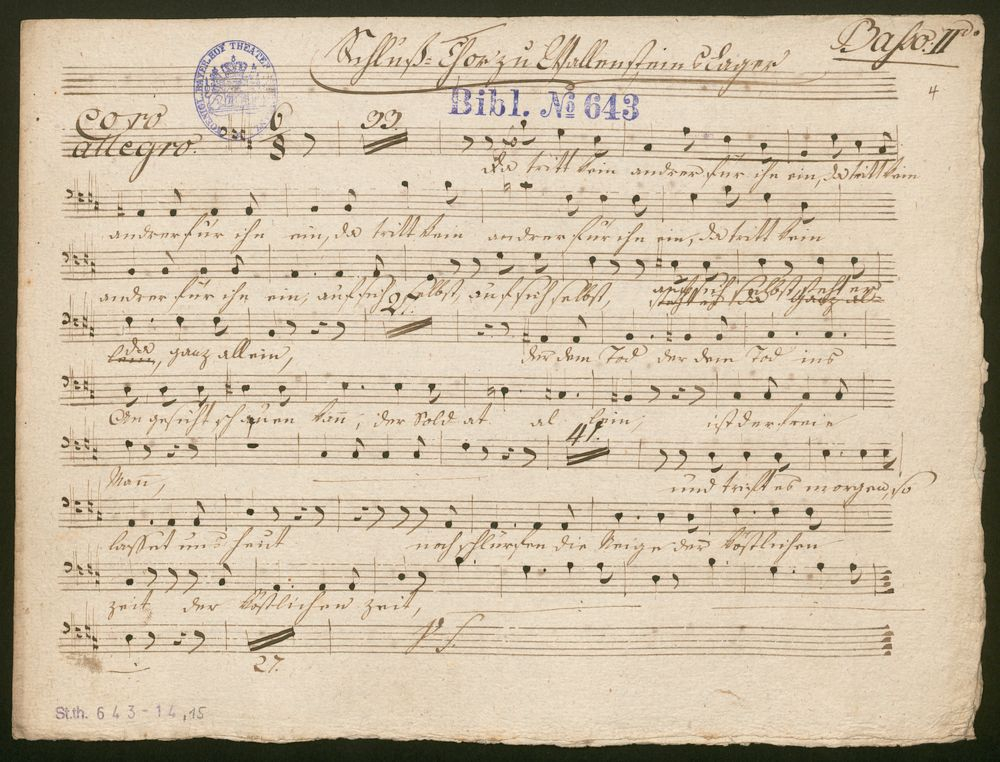 Basso: II
Schluß=Chor zu Wallensteins Lager
4
Bibl. № 643
Coro
allegro.
6
8
33.
da tritt kein andrer für ihn ein, da tritt kein
andrer für ihn ein, da tritt kein andrer für ihn ein, da tritt kein
andrer für ihn ein; auf sich selbst, auf sich selbst, auf sich selbst steht er
2.
da, ganz allein, der dem Tod der dem Tod ins
Angesicht schauen kann, der Soldat allein, ist der freie
41.
Mann, und trifft es morgen, so
lasset uns heut noch schlürfen die Neige der köstlichen
Zeit, der köstlichen Zeit,
27.
V. S.
St.th. 643-14,15